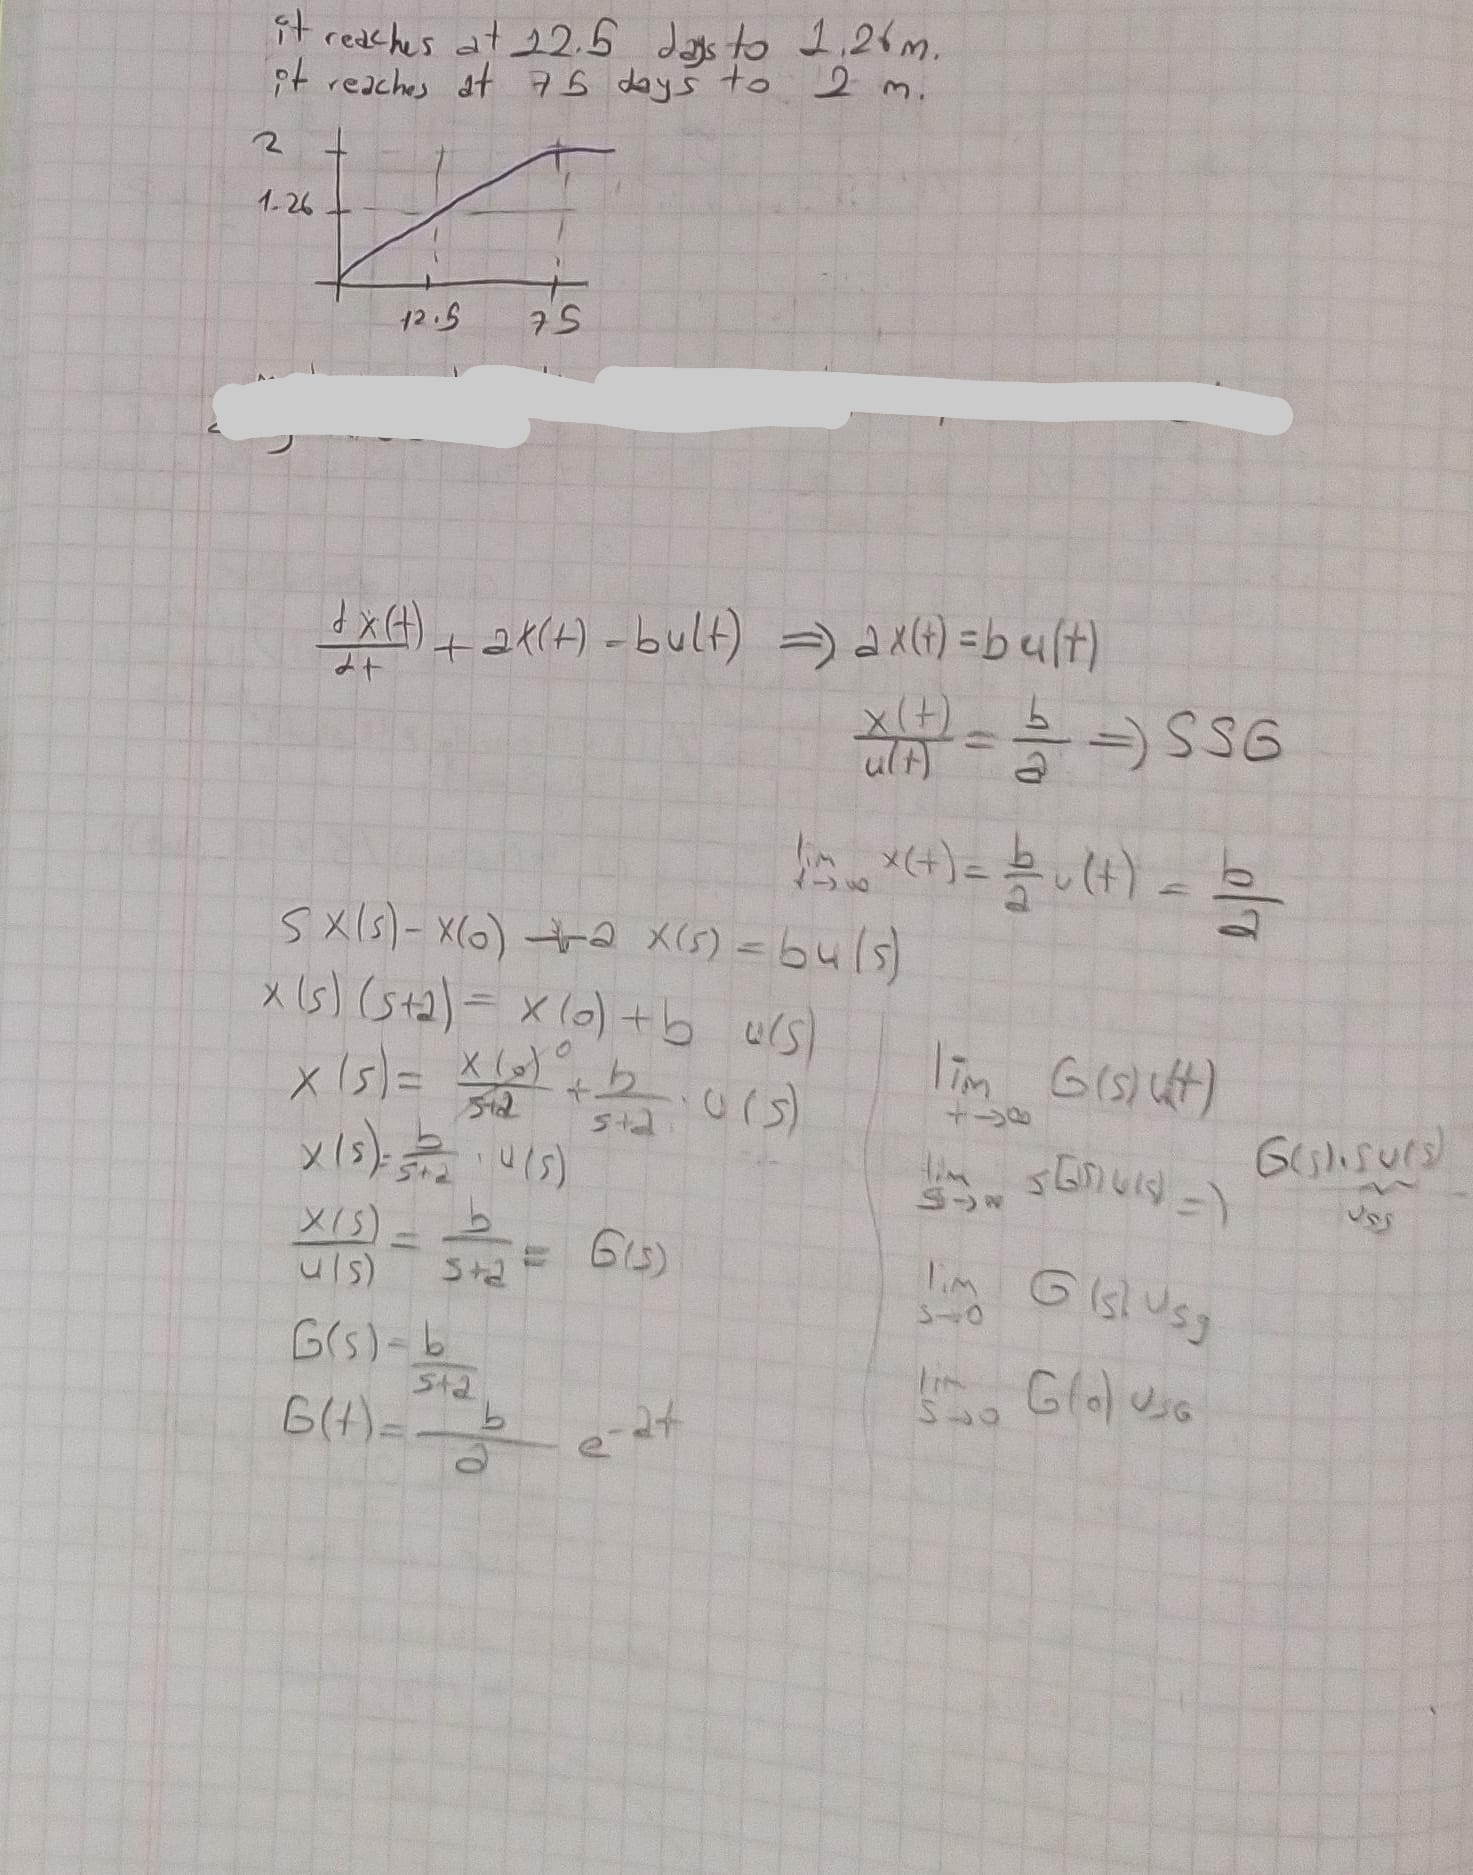 it reaches at 12.5 days to 1.26 m.
it reaches at 75 days to 2 m.
2
1.26
12.5 75
dx(t)/dt + ax(t) = bu(t) ⇒ ax(t) = bu(t)
x(t)/u(t) = b/a ⇒ SSG
lim t→∞ x(t) = b/a u(t) = b/a
sx(s) - x(0) + a x(s) = bu(s)
x(s) (s+a) = x(0) + b u(s)
x(s) = x(0)/s+a 0 + b/s+a . u(s)
x(s) = b/s+a . u(s)
x(s)/u(s) = b/s+a = G(s)
G(s) = b/s+a
G(t) = b/a e^-at
lim t→∞ G(s) u(t)
lim s→∞ s G(s) u(s) ⇒ G(s).su(s)
uss
lim s→0 G(s) usg
lim s→0 G(0) usG